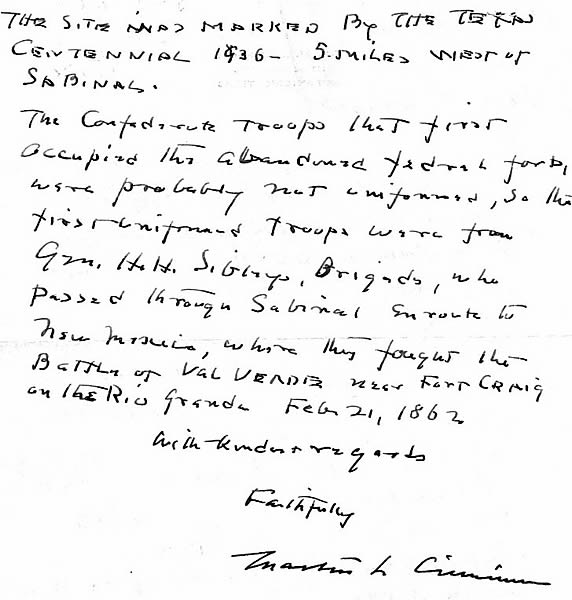 THE SITE WAS MARKED By THE TEXAS
CENTENNIAL 1936 - 5 MILES WEST OF
SABINAL.
The Confederate troops that first
occupied the abandoned federal forts,
were probably not uniformed, so the
first uniformed troops were from
Gen. H.H. Sibleys, Brigade, who
passed through Sabinal enroute to
New Mexico, where they fought the
Battle of VAL VERDE near Fort CRAIG
on the Rio Grande Feb. 21, 1862
With kindest regards
Faithfully
Martin L